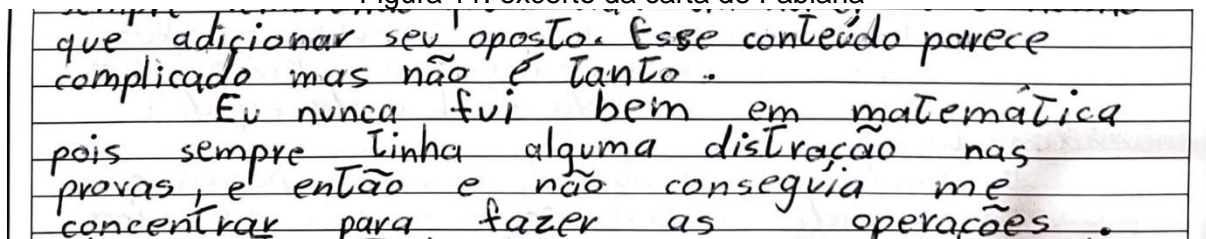 Figura 11: excerto da carta de Fabiana
que adicionar seu oposto. Esse conteúdo parece
complicado mas não é tanto.
Eu nunca fui bem em matemática
pois sempre tinha alguma distração nas
provas, e então e não conseguia me
concentrar para fazer as operações.